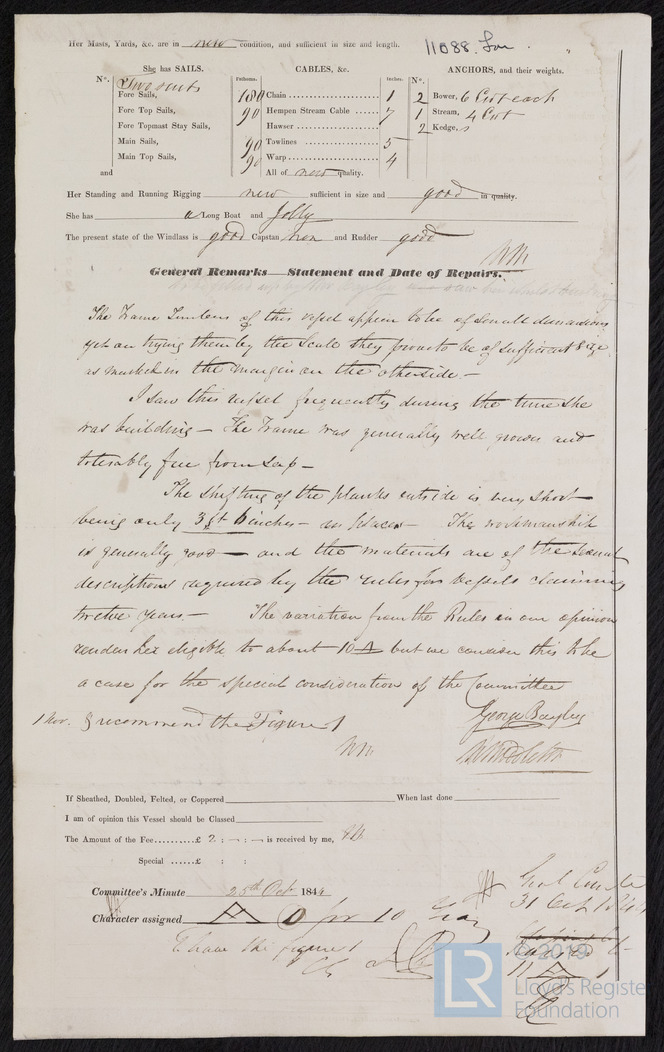 Her Masts, Yards, &c. are in new condition, and sufficient in size and length.
11088. Lon.
She has SAILS.
CABLES, &c.
ANCHORS, and their weights.
N°.
Fathoms.
Inches.
N°.
Two suits
Fore Sails,
180 Chain 1
2 Bower, 6 Cwt each
Fore Top Sails,
90 Hempen Stream Cable 7
1 Stream, 4 Cwt
Fore Topmast Stay Sails,
Hawser
2 Kedge, s
Main Sails,
90 Towlines 5
Main Top Sails,
90 Warp 4
and
All of new quality.
Her Standing and Running Rigging new sufficient in size and good in quality.
She has a Long Boat and Jolly
The present state of the Windlass is good Capstan and Rudder good
WM
General Remarks—Statement and Date of Repairs.
The Frame Timbers of this vessel appear to be of small dimensions
yet on trying them by the Scale they prove to be of sufficient size
as marked in the margin on the otherside —
I saw this vessel frequently during the time she
was building — The Frame was generally well grown and
tolerably free from Sap —
The shifting of the planks outside is very short
being only 3 ft 6 inches — in places — The workmanship
is generally good — and the materials are of the several
descriptions required by the rules for Vessels claiming
twelve years — The variation from the Rules in our opinion
render her eligible to about 10 A but we consider this to be
a case for the special consideration of the Committee
1 Nov. I recommend the Figure 1
WM
George Bayley
W Middleton
If Sheathed, Doubled, Felted, or Coppered When last done
I am of opinion this Vessel should be Classed
The Amount of the Fee......£ 2 : — : — is received by me,
Special ......£ : :
Committee's Minute 25th Oct 1844
Character assigned A 1 for 10
31 Oct 1844
I have the figure 1
11 A 1
LR
© 2019
Lloyd's Register
Foundation